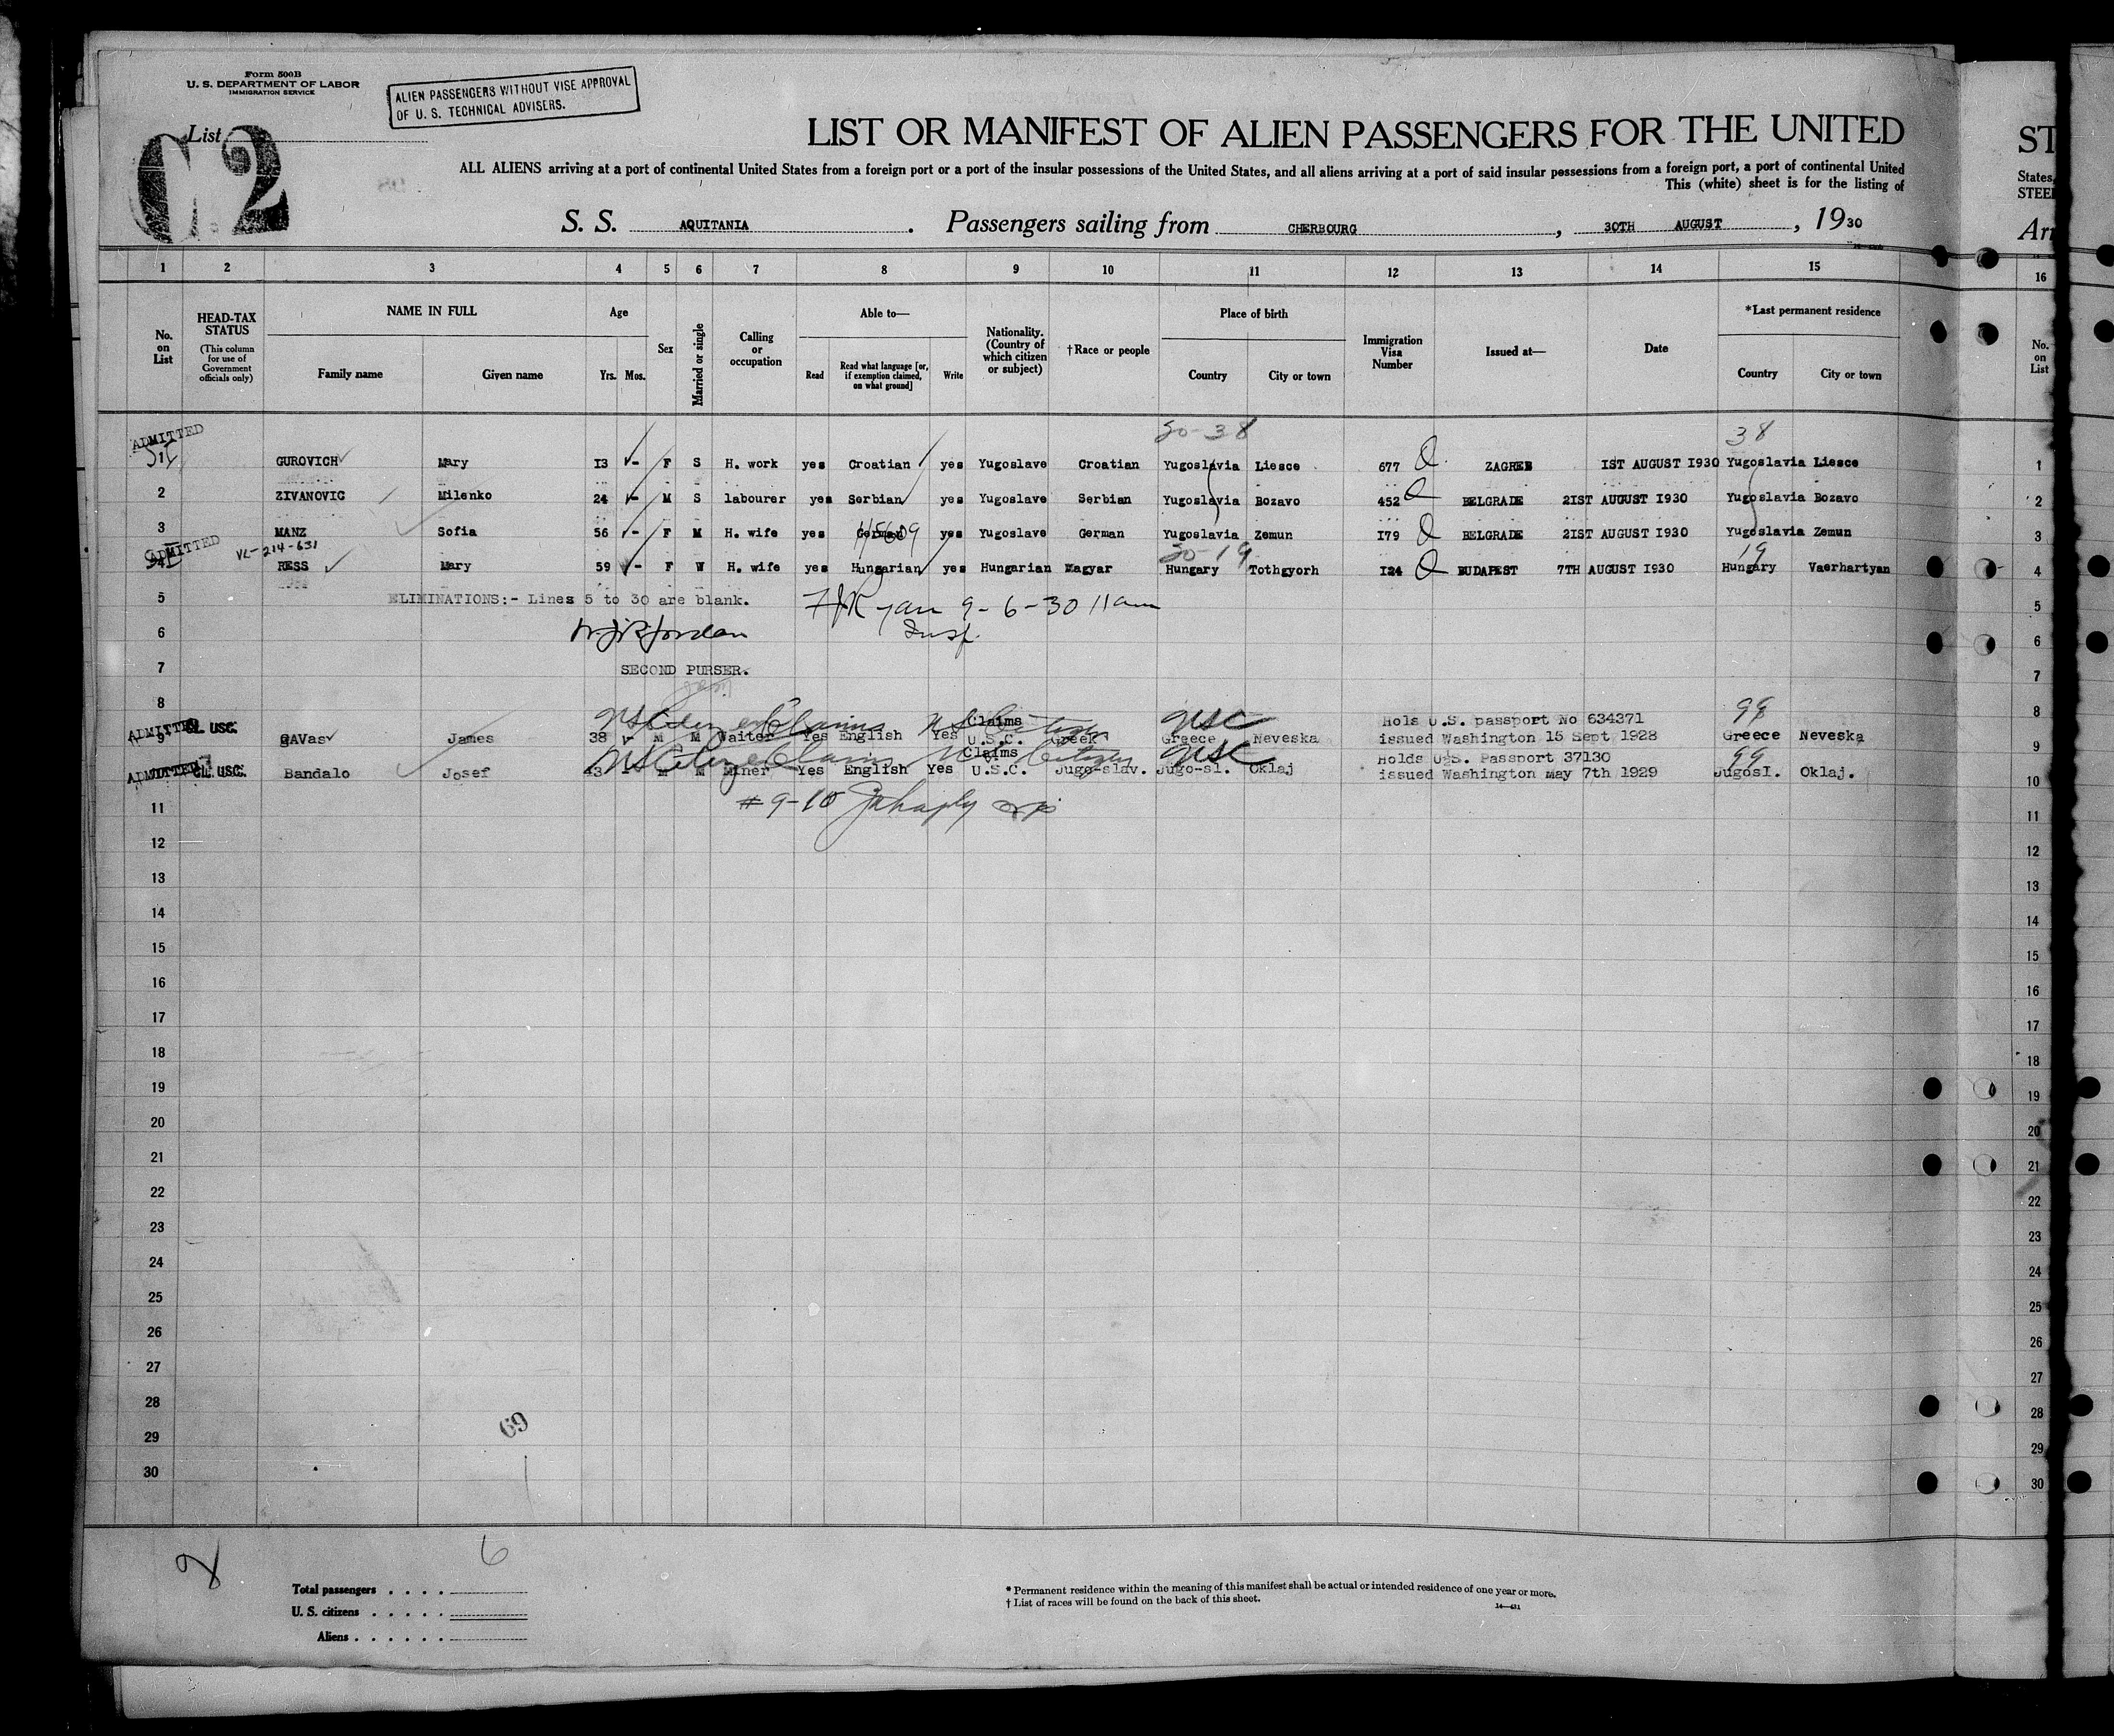 Form 500B
U. S. DEPARTMENT OF LABOR
IMMIGRATION SERVICE
ALIEN PASSENGERS WITHOUT VISE APPROVAL
OF U. S. TECHNICAL ADVISERS.
List
C.2
LIST OR MANIFEST OF ALIEN PASSENGERS FOR THE UNITED
ST
ALL ALIENS arriving at a port of continental United States from a foreign port or a port of the insular possessions of the United States, and all aliens arriving at a port of said insular possessions from a foreign port, a port of continental United
States,
This (white) sheet is for the listing of
STEE
S. S. AQUITANIA. Passengers sailing from CHERBOURG, 30TH AUGUST, 1930
Arr
1 2 3 4 5 6 7 8 9 10 11 12 13 14 15 16
No. on List
HEAD-TAX STATUS
(This column for use of Government officials only)
NAME IN FULL
Family name Given name
Age
Yrs. Mos.
Sex
Married or single
Calling or occupation
Able to—
Read
Read what language [or, if exemption claimed, on what ground]
Write
Nationality. (Country of which citizen or subject)
†Race or people
Place of birth
Country City or town
Immigration Visa Number
Issued at—
Date
*Last permanent residence
Country City or town
No. on List
20-38 38
ADMITTED
GUROVICH Mary 13 - F S H. work yes Croatian yes Yugoslave Croatian Yugoslavia Liesce 677 ZAGREB 1ST AUGUST 1930 Yugoslavia Liesce 1
2 ZIVANOVIC Milenko 24 - M S labourer yes Serbian yes Yugoslave Serbian Yugoslavia Bozavo 452 BELGRADE 21ST AUGUST 1930 Yugoslavia Bozavo 2
3 MANZ Sofia 56 - F M H. wife yes German yes Yugoslave German Yugoslavia Zemun 179 BELGRADE 21ST AUGUST 1930 Yugoslavia Zemun 3
ADMITTED VL-214-631 20-19 19
4 RESS Mary 59 - F W H. wife yes Hungarian yes Hungarian Magyar Hungary Tothgyorh 124 BUDAPEST 7TH AUGUST 1930 Hungary Vaerhartyan 4
5 ELIMINATIONS:- Lines 5 to 30 are blank. 9-6-30 11am 5
6 Jordan Insp. 6
7 SECOND PURSER. 7
8 Claims USC Hols U.S. passport No 634371 99 8
ADMITTED CL. USC.
9 gAVas James 38 M M Waiter Yes English Yes U.S.C. Greek Greece Neveska issued Washington 15 Sept 1928 Greece Neveska 9
US Citizen Claims US Citizen
Claims USC Holds U.S. Passport 37130 99
ADMITTED CL. USC. Bandalo Josef 43 M M Miner Yes English Yes U.S.C. Jugo-slav. Jugo-sl. Oklaj issued Washington may 7th 1929 Jugosl. Oklaj. 10
11 #9-10 11
12 12
13 13
14 14
15 15
16 16
17 17
18 18
19 19
20 20
21 21
22 22
23 23
24 24
25 25
26 26
27 27
28 28
29 69 29
30 30
6
Total passengers
U. S. citizens
Aliens
* Permanent residence within the meaning of this manifest shall be actual or intended residence of one year or more.
† List of races will be found on the back of this sheet.
14—431